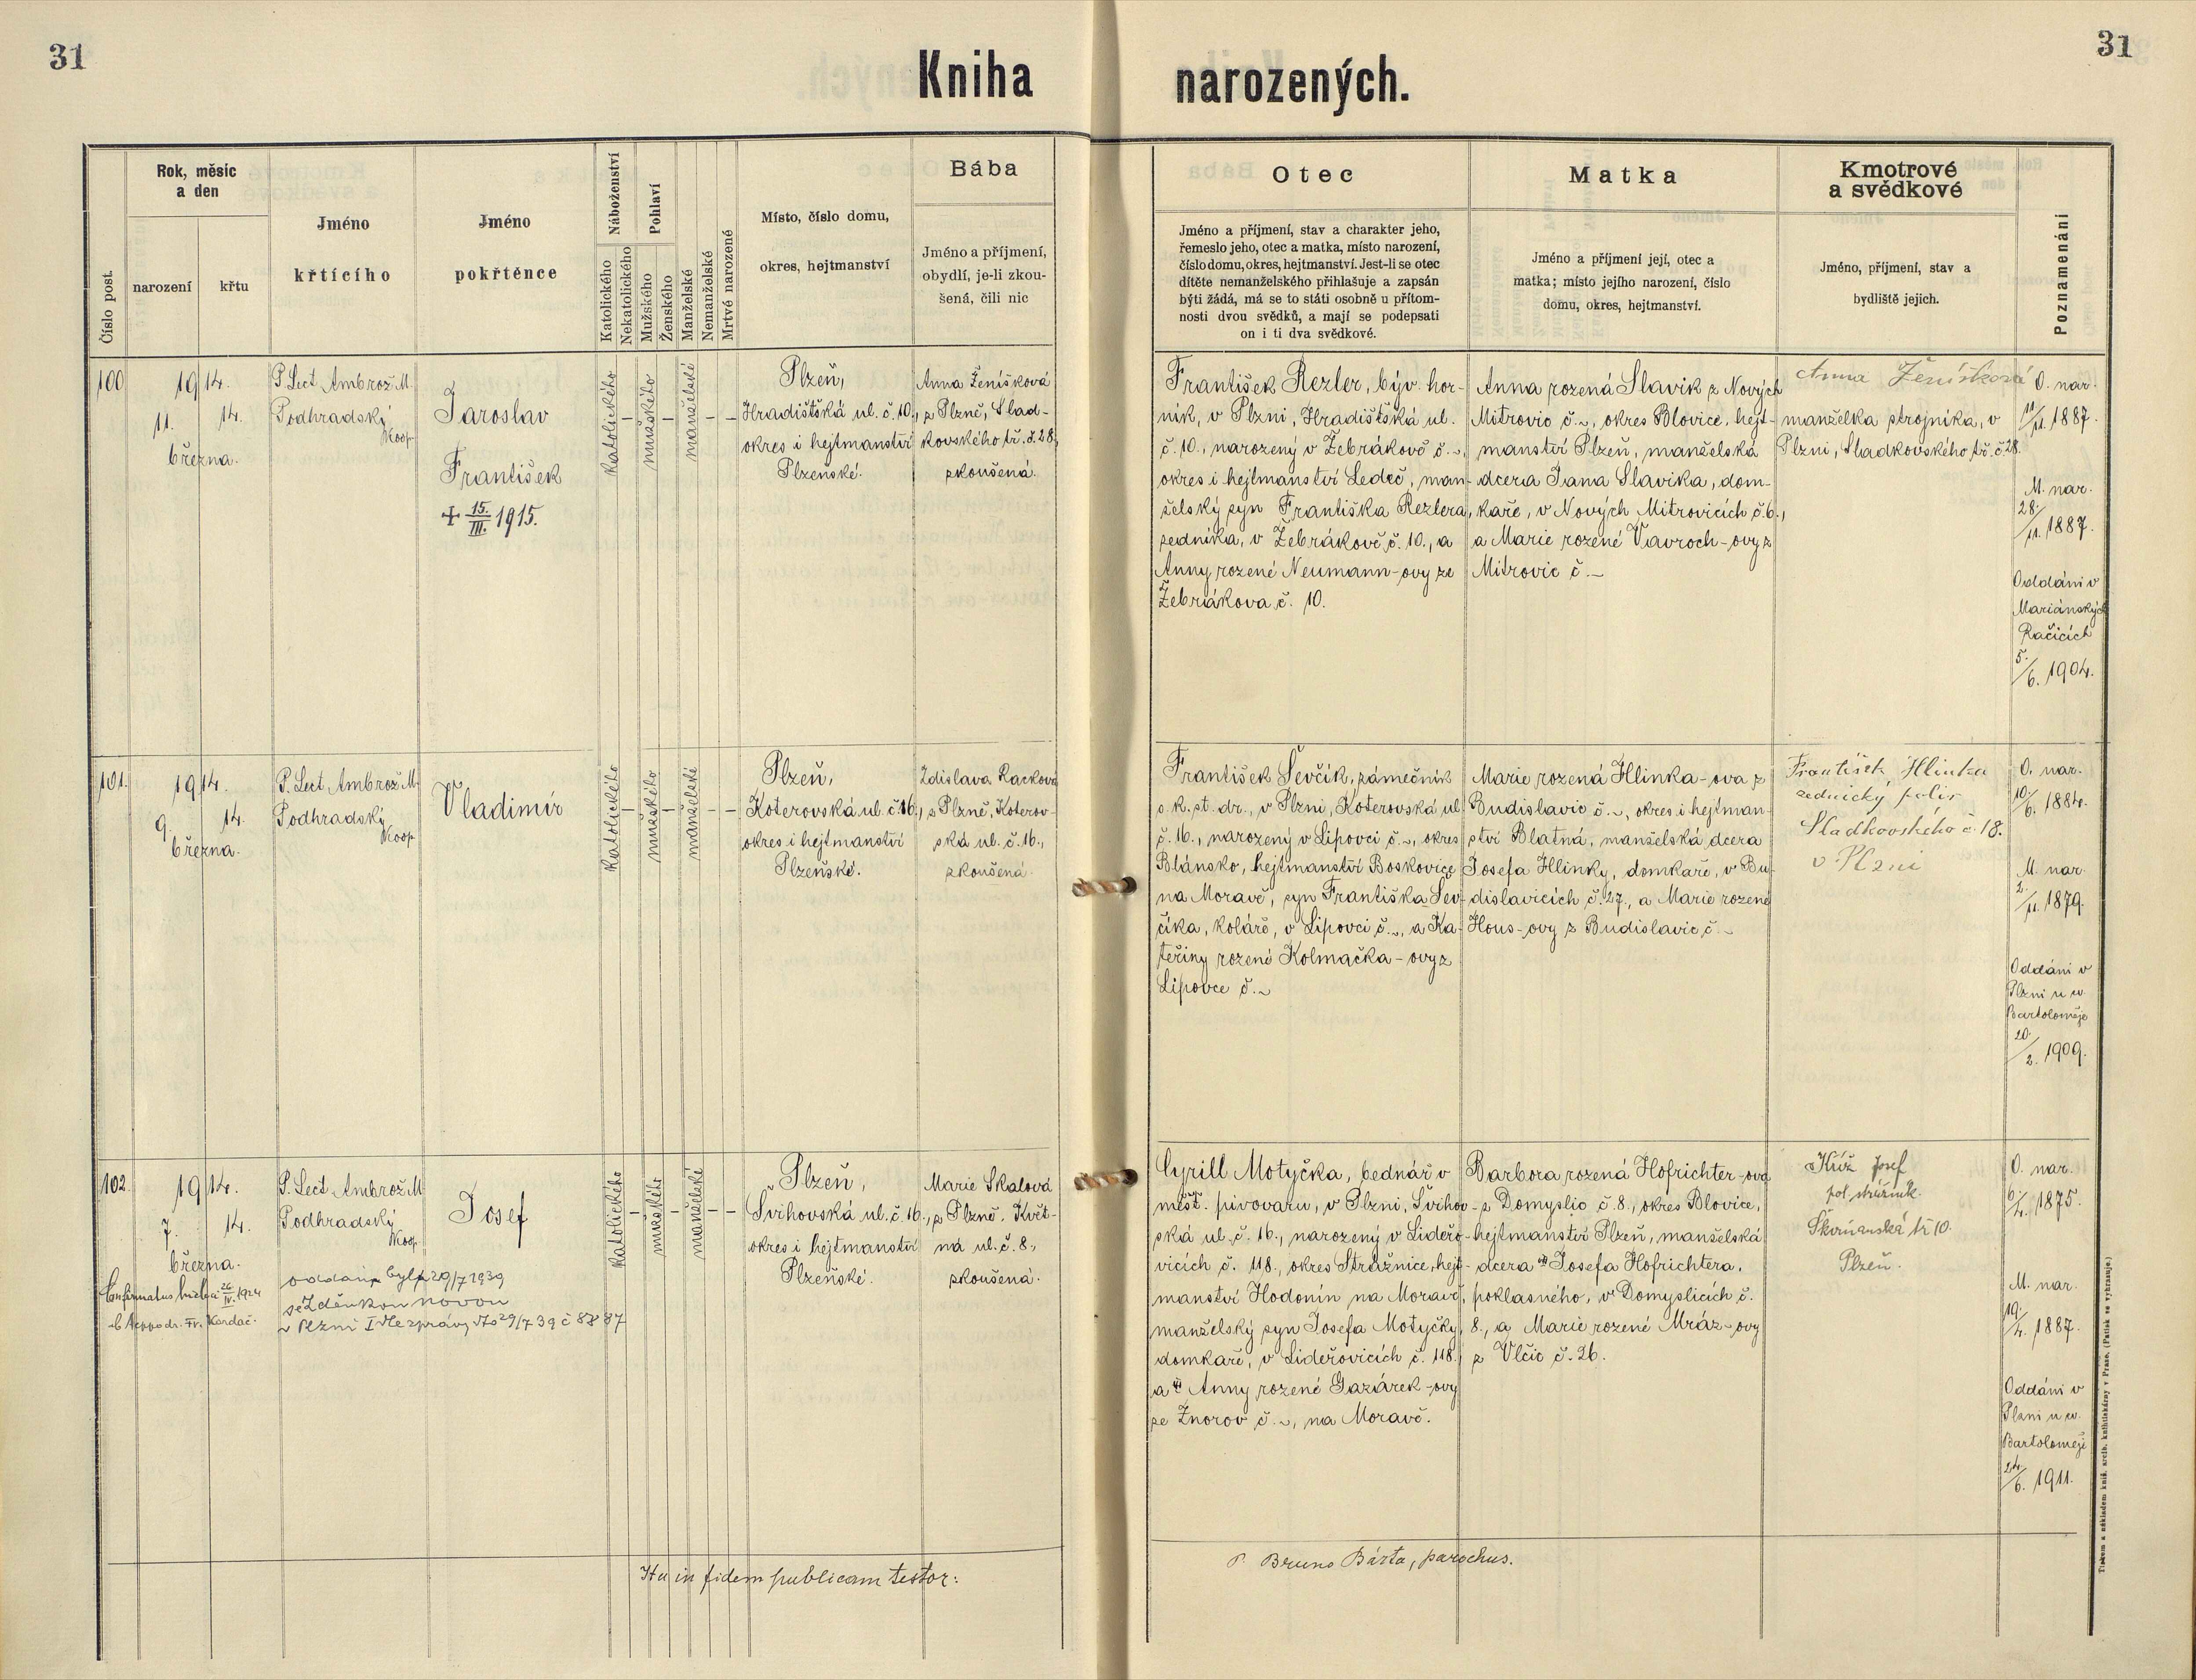 31
31
Kniha narozených.
Číslo post.
Rok, měsíc
a den
narození
křtu
Jméno
křtícího
Jméno
pokřtěnce
Náboženství
Katolického
Nekatolického
Pohlaví
Mužského
Ženského
Manželské
Nemanželské
Mrtvé narozené
Místo, číslo domu,
okres, hejtmanství
Bába
Jméno a příjmení,
obydlí, je-li zkou-
šená, čili nic
Otec
Jméno a příjmení, stav a charakter jeho,
řemeslo jeho, otec a matka, místo narození,
číslo domu, okres, hejtmanství. Jest-li se otec
dítěte nemanželského přihlašuje a zapsán
býti žádá, má se to státi osobně u přítom-
nosti dvou svědků, a mají se podepsati
on i ti dva svědkové.
Matka
Jméno a příjmení její, otec a
matka; místo jejího narození, číslo
domu, okres, hejtmanství.
Kmotrové
a svědkové
Jméno, příjmení, stav a
bydliště jejich.
Poznamenání
100
1914.
11. 14.
března.
P. Lect. Ambrož M.
Podhradský
Koop.
Jaroslav
František
+ 15./III. 1915.
Katolického
–
mužského
–
manželské
–
–
Plzeň,
Hradištská ul. č. 10,
okres i hejtmanství
Plzeňské.
Anna Ženíšková
z Plzně, Slad-
kovského tř. č. 28,
zkoušená.
František Rezler, býv. hor-
ník, v Plzni, Hradištská ul.
č. 10., narozený v Žebrákově č. ~,
okres i hejtmanství Ledeč, man-
želský syn Františka Rezlera,
zedníka, v Žebrákově č. 10., a
Anny rozené Neumann-ovy ze
Žebrákova č. 10.
Anna rozená Slavík z Nových
Mitrovic č. ~, okres Blovice, hejt-
manství Plzeň, manželská
dcera Jana Slavíka, dom-
kaře, v Nových Mitrovicích č. 6.,
a Marie rozené Vavroch-ovy z
Mitrovic č. –
Anna Ženíšková
manželka strojníka, v
Plzni, Sladkovského tř. č. 28.
O. nar.
11/11. 1887.
M. nar.
28./11. 1887.
Oddáni v
Mariánských
Račicích
5./6. 1904.
101.
1914.
9. 14.
března.
P. Lect. Ambrož M.
Podhradský
Koop.
Vladimír
Katolického
–
mužského
–
manželské
–
–
Plzeň,
Koterovská ul. č. 16.,
okres i hejtmanství
Plzeňské.
Zdislava Racková
z Plzně, Koterov-
ská ul. č. 16.,
zkoušená.
František Ševčík, zámečník
c. k. st. dr., v Plzni, Koterovská ul.
č. 16., narozený v Lipovci č. ~, okres
Blánsko, hejtmanství Boskovice
na Moravě, syn Františka Šev-
číka, koláře, v Lipovci č. ~, a Ka-
teřiny rozené Kolmačka-ovy z
Lipovce č. ~
Marie rozená Hlinka-ova z
Budislavic č. ~, okres i hejtman-
ství Blatná, manželská dcera
Josefa Hlinky, domkaře, v Bu-
dislavicích č. 27., a Marie rozené
Hous-ovy z Budislavic č. ~
František Hlinka
zednický polír
Sladkovského č. 18.
v Plzni
O. nar.
10/6. 1884.
M. nar.
2./11. 1879.
Oddáni v
Plzni u sv.
Bartoloměje
20/2. 1909.
102.
1914.
7. 14.
března.
Confirmatus 26/IV. 1924
P. Lect. Ambrož M.
Podhradský
Koop.
Josef
oddán byl 29/7 1939
se Zdeňkou
v Plzni
Katolického
–
mužského
–
manželské
–
–
Plzeň,
Švihovská ul. č. 16.,
okres i hejtmanství
Plzeňské.
Marie Skalová
z Plzně, Květ-
ná ul. č. 8.,
zkoušená.
Cyrill Motyčka, bednář v
měšť. pivovaru, v Plzni, Švihov-
ská ul. č. 16., narozený v Lideřo-
vicích č. 118., okres Strážnice, hejt-
manství Hodonín na Moravě,
manželský syn Josefa Motyčky,
domkaře, v Lideřovicích č. 118.,
a Anny rozené Gazárek-ovy
ze Znorov č. ~, na Moravě.
Barbora rozená Hofrichter-ova
z Domyslic č. 8., okres Blovice,
hejtmanství Plzeň, manželská
dcera Josefa Hofrichtera,
poklasného, v Domyslicích č.
8., a Marie rozené Mráz-ovy
z Vlčic č. 26.
Kříž Josef
pol. strážník.
Škvrňanská tř. 10.
Plzeň.
O. nar.
6./4. 1875.
M. nar.
19./4. 1887.
Oddáni v
Plzni u sv.
Bartoloměje
24./6. 1911.
Ita in fidem publicam testor:
P. Bruno Bárta, parochus.